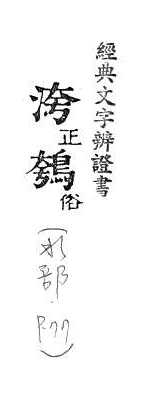 經典文字辨證書
洿正
瓠俗
(水部.P.77)